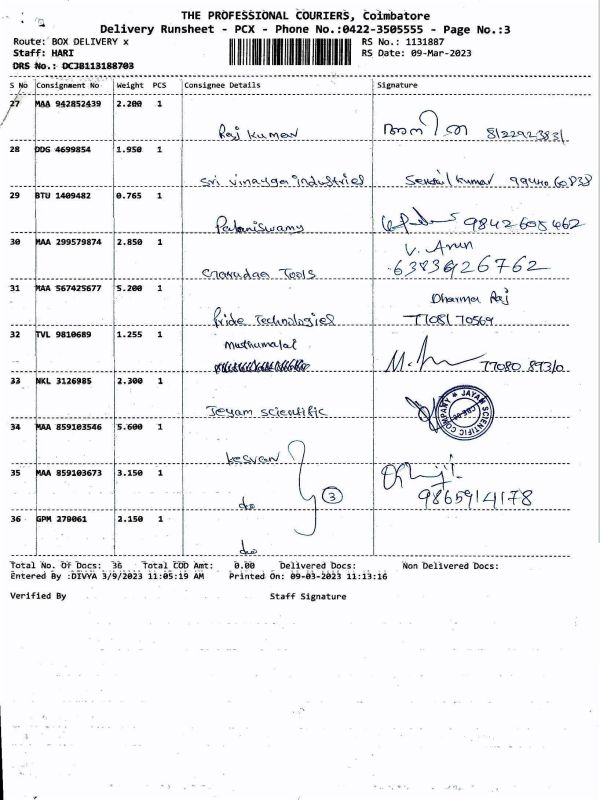 THE PROFESSIONAL COURIERS, Coimbatore
Delivery Runsheet - PCX - Phone No.:0422-3505555 - Page No.:3
Route: BOX DELIVERY x
RS No.: 1131887
Staff: HARI
RS Date: 09-Mar-2023
DRS No.: DCJB113188703
S No Consignment No Weight PCS Consignee Details Signature
27 MAA 942852439 2.200 1
Raj Kumar
28 DDG 4699854 1.950 1
Sri Vinayga industries Senthil Kumar
29 BTU 1409482 0.765 1
Palaniswamy 9842605462
30 MAA 299579874 2.850 1
V. Arun
Tools
31 MAA 567425677 5.200 1
Dharma Raj
Pride Technologies 77081 70569
32 TVL 9810689 1.255 1
77080 87310
33 NKL 3126985 2.300 1
Jeyam scientific
JAYAM SCIENTIFIC COMPANY
34 MAA 859103546 5.600 1
kesvan
35 MAA 859103673 3.150 1
do 3 9865914178
36 GPM 279061 2.150 1
do
Total No. Of Docs: 36 Total COD Amt: 0.00 Delivered Docs: Non Delivered Docs:
Entered By :DIVYA 3/9/2023 11:05:19 AM Printed On: 09-03-2023 11:13:16
Verified By Staff Signature